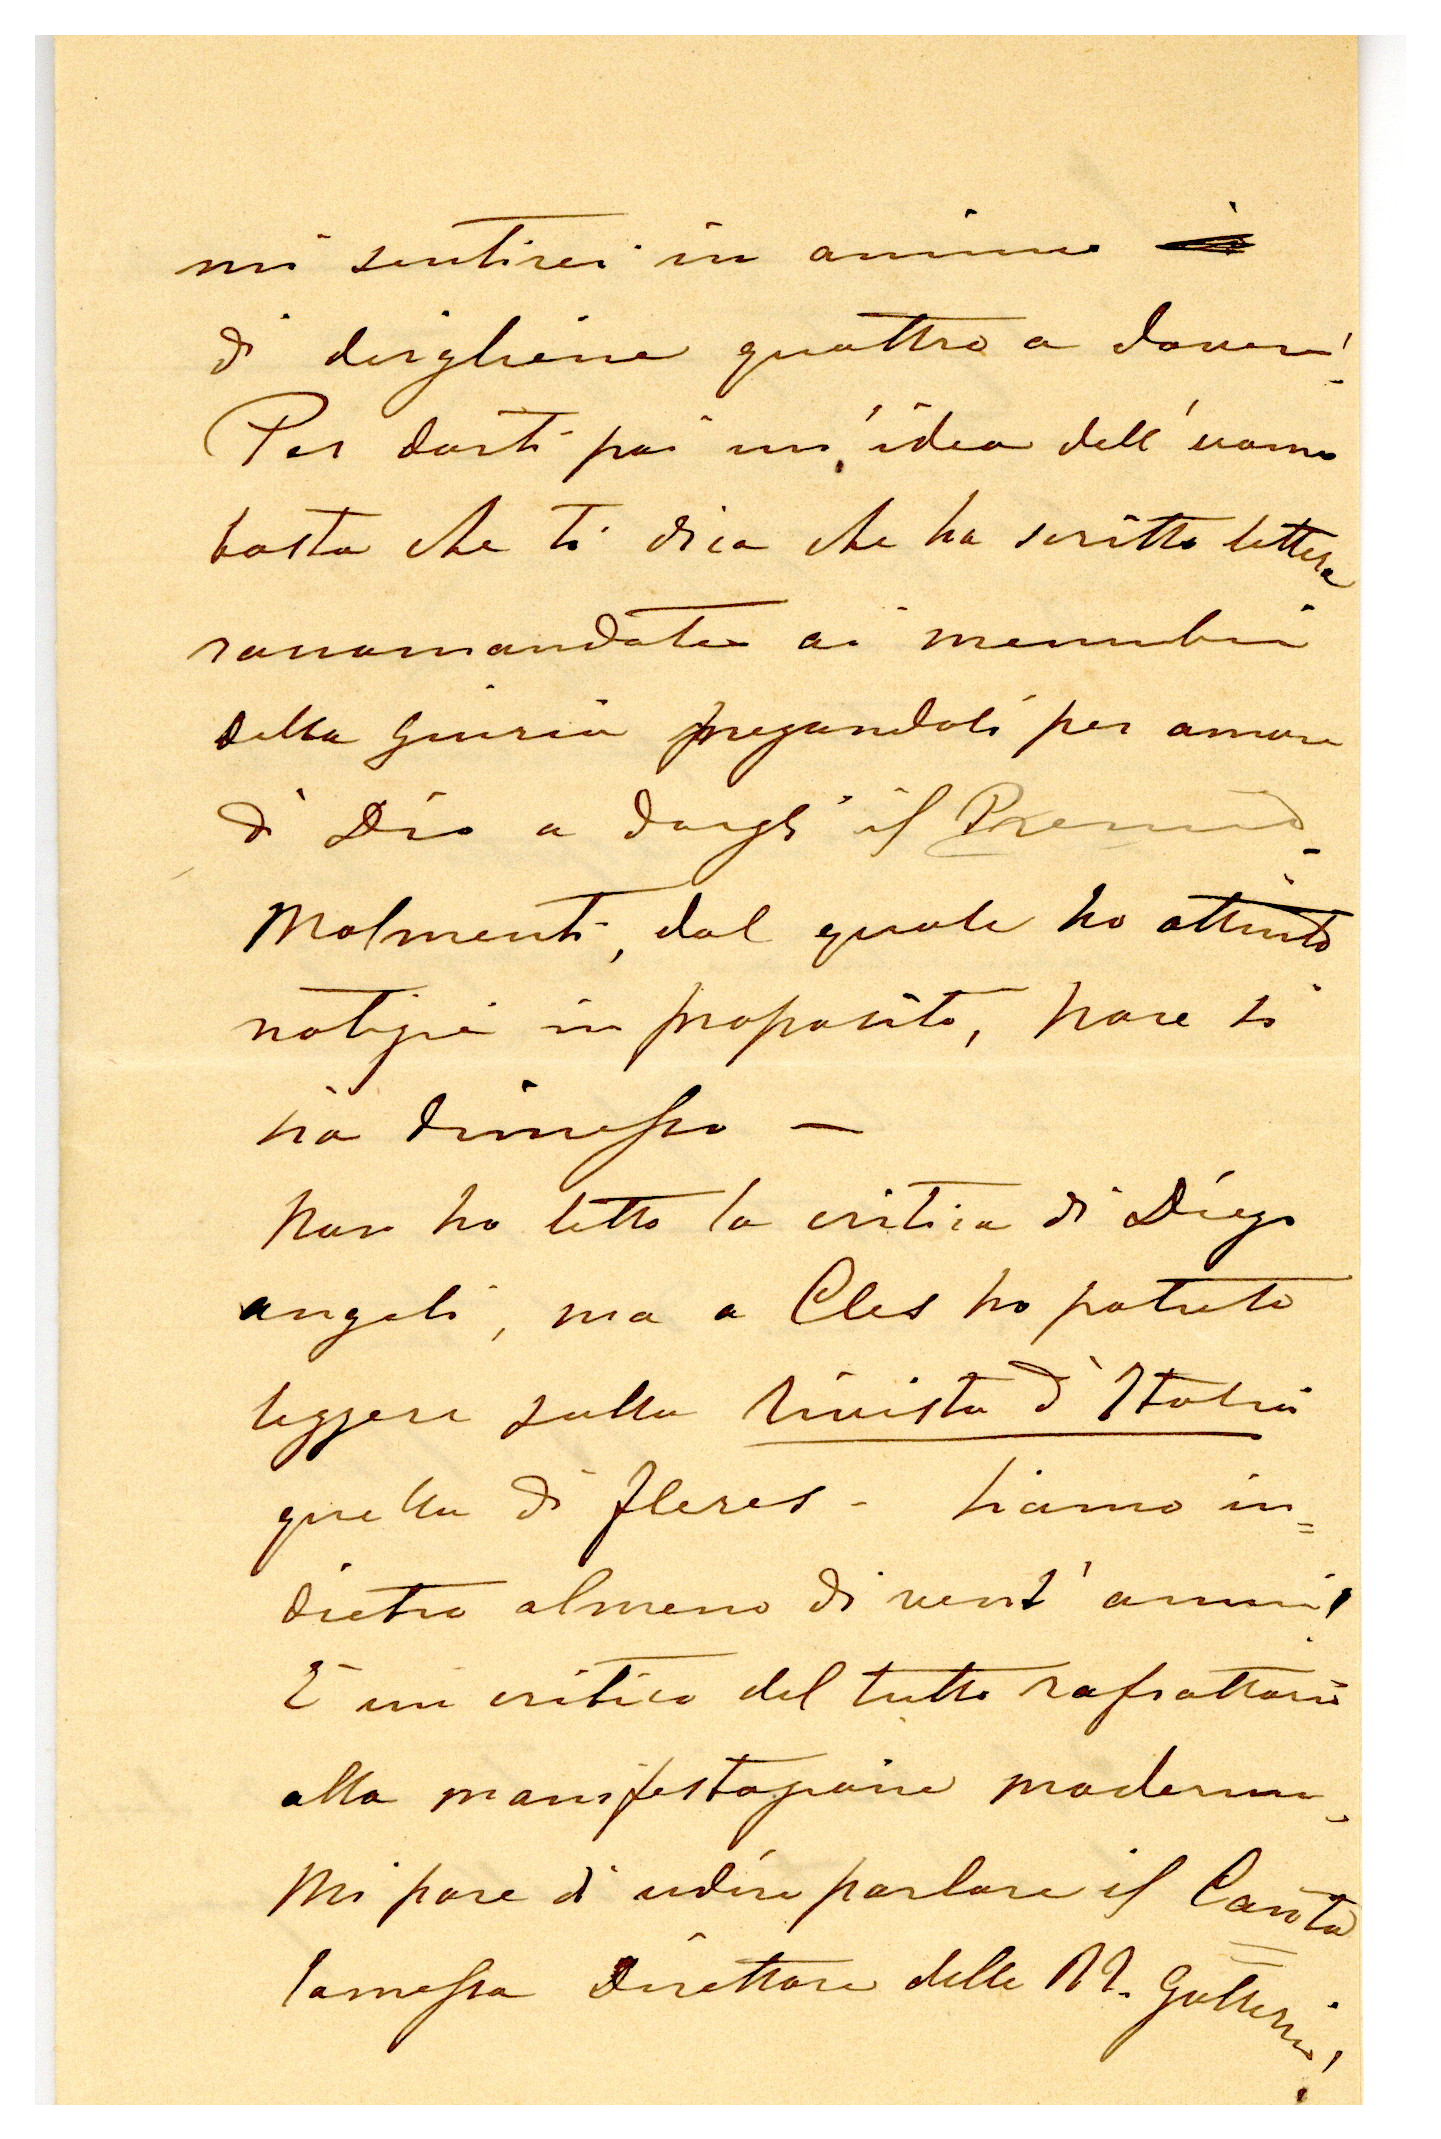 mi sentirei in animo
di dirgliene quattro a dovere!
Per darti poi un'idea dell'uomo
basta che ti dica che ha scritto lettere
raccomandate ai membri
della Giuria pregandoli per amore
di Dio a dargli il Premio.
Molmenti, dal quale ho attinto
notizie in proposito, pare si
sia dimesso —
Non ho letto la critica di Diego
Angeli, ma a Cles ho potuto
leggere sulla Rivista d'Italia
quella di Fleres - Siamo in=
dietro almeno di vent'anni!
È un critico del tutto rafrattario
alla manifestazione moderna,
Mi pare di udire parlare il Canta
lamessa Direttore delle RR. Gallerie!